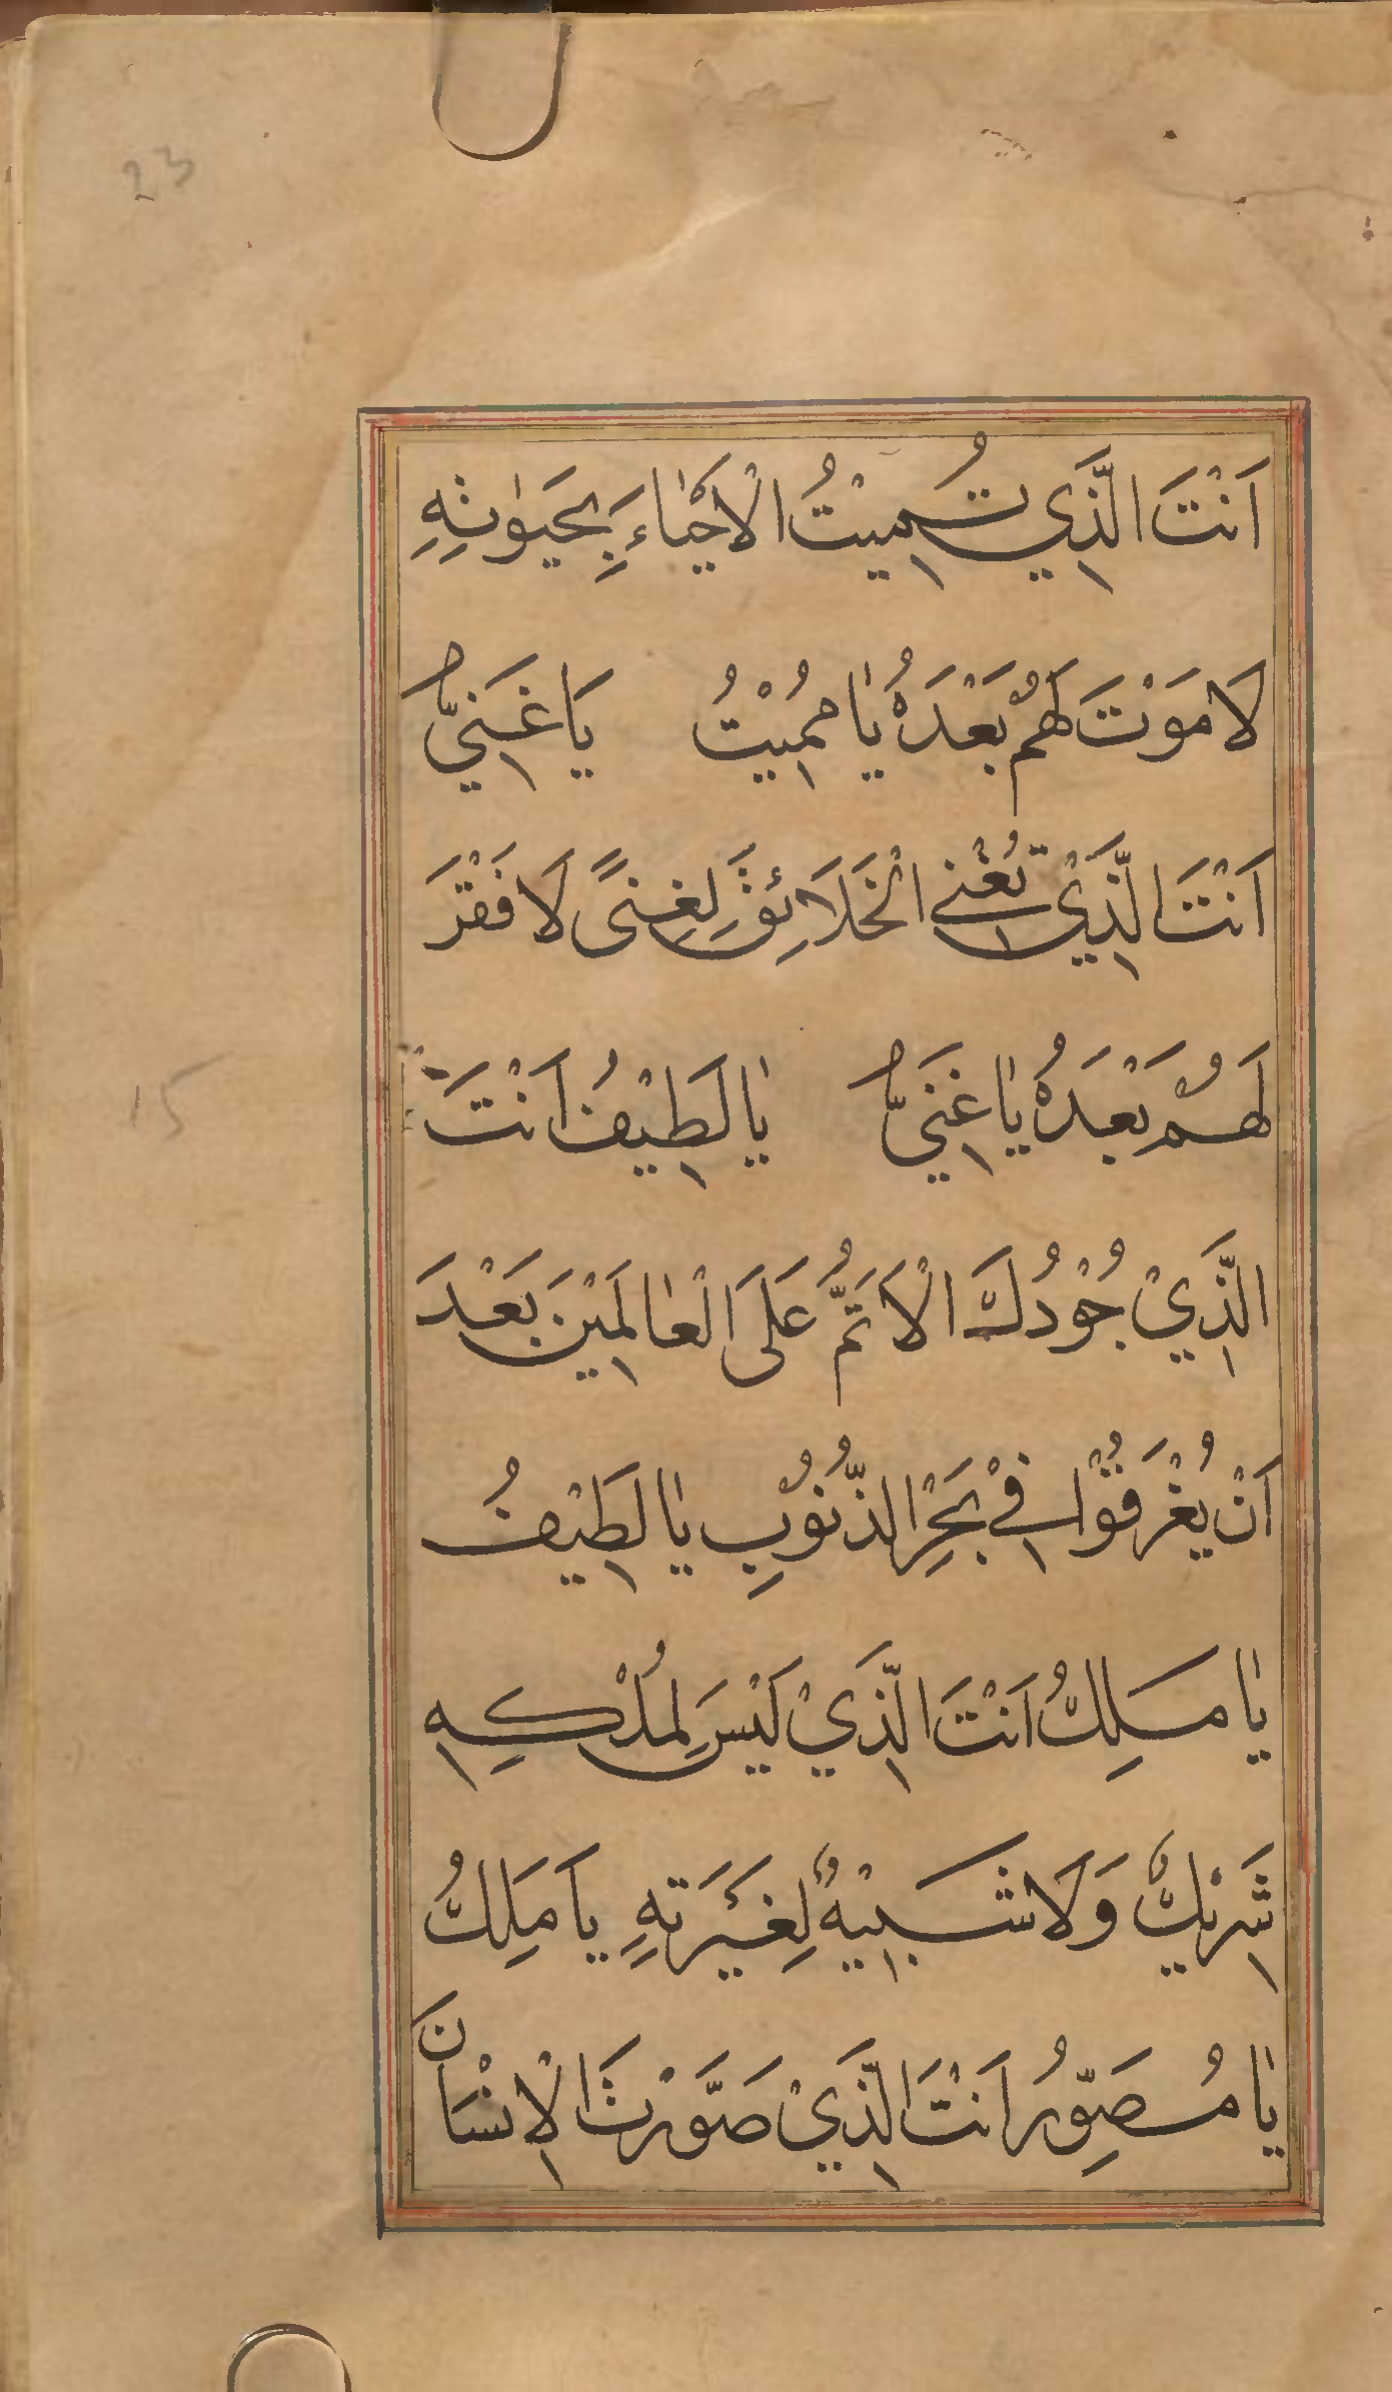 23
اَنْتَ الَّذِي تُمِيتُ الْاَحْيٰاءَ بِحَيٰوتِهِ
لَا مَوْتَ لَهُمْ بَعْدَهُ يٰا مُمِيْتُ يَا غَنِيُّ
اَنْتَ الَّذِيْ تُغْنِي الْخَلَائِقَ لِغِنىً لَا فَقْرَ
لَهُمْ بَعْدَهُ يٰا غَنِيُّ يٰا لَطِيْفُ اَنْتَ
الَّذِيْ جُوْدُكَ الْاَتَمُّ عَلَى الْعٰالَمِيْنَ بَعْدَ
اَنْ يُغْرَقُوْا فِيْ بَحْرِ الذُّنُوْبِ يٰا لَطِيْفُ
15
يٰا مَلِكُ اَنْتَ الَّذِيْ لَيْسَ لِمُلْكِهِ
شَرِيْكٌ وَلَا شَبِيْهٌ لِغَيْرَتِهِ يَا مَلِكُ
يٰا مُصَوِّرُ اَنْتَ الَّذِيْ صَوَّرْتَ الْاِنْسَانَ